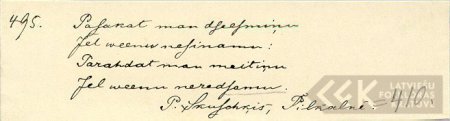 495. Pasakat man dseesmiņu
Jel weenu nesinamu:
Parahdat man meitiņu
Jel weenu neredsamu.
P. Skuschķis, Pilkalne = 410
LATVIEŠU
FOLKLORAS
KRĀTUVE